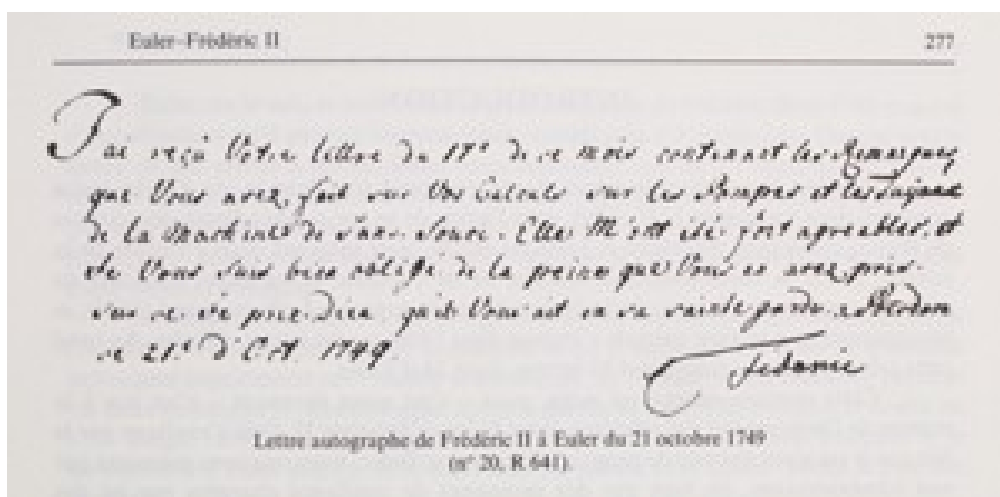 Euler–Frédéric II 277
J'ai reçû Votre lettre du 17e de ce mois contenant les Remarques
que Vous avez fait sur Vos Calculs sur les Pompes et les Tuÿaux
de la Machine de Sans-Souci. Elles M'ont été fort agreables, et
Je Vous suis bien obligé de la peine que Vous en avez pris.
Sur ce Je prie Dieu qu'il Vous ait en sa sainte garde. à Potsdam
ce 21e d'Oct. 1749.
Federic
Lettre autographe de Frédéric II à Euler du 21 octobre 1749
(n° 20, R 641).